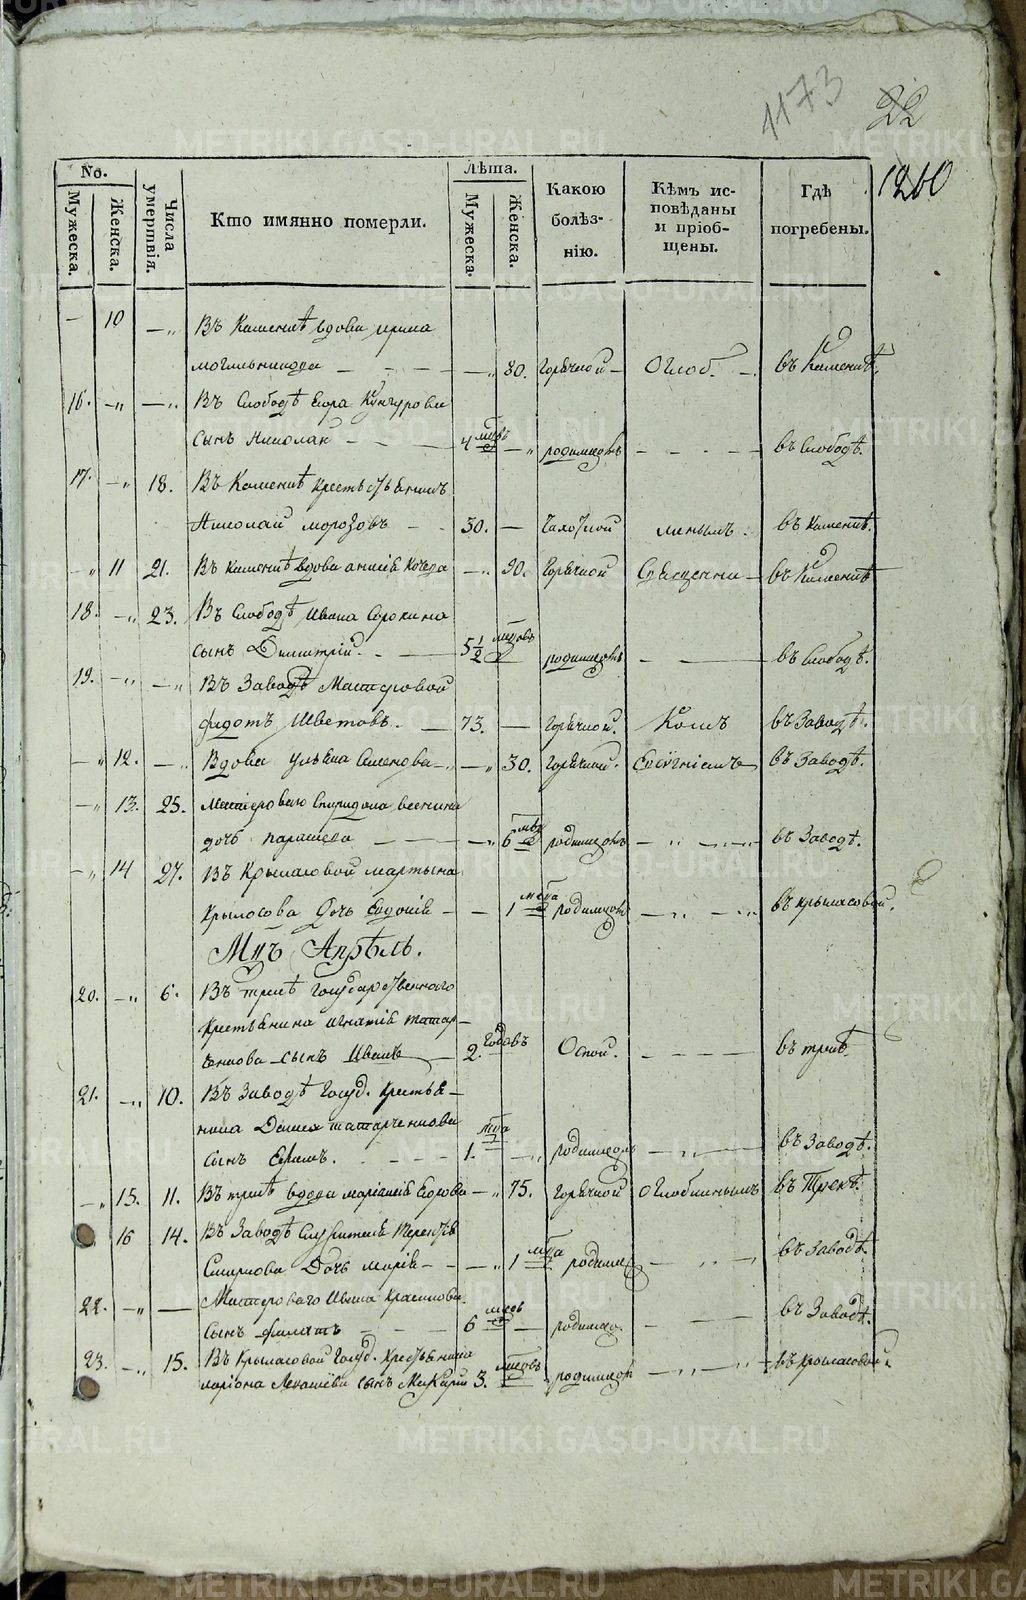 1173
22
1260
No.
Мужеска.
Женска.
Числа умертвія.
Кто имянно померли.
Лѣта.
Мужеска.
Женска.
Какою
болѣз-
нію.
Кѣмъ ис-
повѣданы
и пріоб-
щены.
Гдѣ
погребены.
— 10 — „ Въ Каменкѣ вдова ирина
— „ 80. Горячкой — въ Каменкѣ.
16. — „ — „ Въ Слободѣ Егора Кунгурова
сынъ Николай — 4 мцовъ — „ родимцомъ — въ Слободѣ.
17. — „ 18. Въ Каменкѣ крестьянинъ
Николай морозовъ — 30. — Чахоткой въ Каменкѣ.
— „ 11 21. Въ Каменкѣ вдова — „ 90. Горячкой въ Каменкѣ
18. — „ 23. Въ Слободѣ Ивана Сорокина
сынъ Димитрій. — 5 1/2 мцовъ родимцомъ — въ Слободѣ.
19. — „ — „ Въ Заводѣ Мастеровой
федотъ Цветовъ. — 73. — Горячкой. въ Заводѣ.
— „ 12. — „ Вдова ульяна Семенова — „ — „ 30. Горячкой. въ Заводѣ.
— „ 13. 25. Мастероваго Спиридона
дочь — „ 6 родимцомъ — „ — „ въ Заводѣ.
— „ 14 27. Въ Крыласовой мартына
Крылосова дочь Евдокия — — 1 мцa родимцомъ — „ — „ въ крыласовой.
Мцъ Апрѣль.
20. — „ 6. Въ трекѣ Государственнаго
крестьянина игнатія татар-
ченкова сынъ Иванъ — 2. Годовъ Оспой. — въ трекѣ
21. — „ 10. Въ Заводѣ Госуд. крестья-
нина татарченкова
сынъ Ефимъ. — 1. мца — „ родимцомъ — „ — въ Заводѣ.
— „ 15. 11. Въ трекѣ вдова Егорова — „ 75. Горячкой въ Трекѣ.
16 14. Въ Заводѣ Служителя Терентья
Смирнова Дочь марія — — — „ 1 мца родимцо — „ — въ Заводѣ.
22. — „ — Мастероваго Ивана
сынъ филатъ — 6 мцовъ — родимцо. — въ Заводѣ.
23. — „ 15. Въ Крыласовой Госуд. Крестьянина
ларіона сынъ Макарій 3. мцовъ родимцом — „ — „ въ Крыласовой.
METRIKI.GASO-URAL.RU